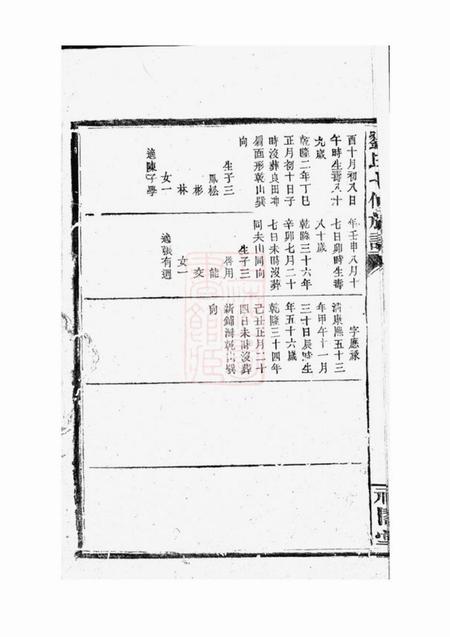 酉十月初八日
午時生壽八十
九歲
乾隆二年丁巳
正月初十日子
時沒葬良田冲
眉面形乾山巽
向
生子三
鳳松
彬
林
女一
適陳子學
年壬申八月十
七日卯時生壽
八十歲
乾隆三十六年
辛卯七月二十
七日未時沒葬
同夫山同向
生子三
能
交
女一
適張有迴
字應祿
清康熙五十三
年甲午十一月
三十日辰時生
年五十六歲
乾隆三十四年
己丑正月二十
四日未時沒葬
新鋪灣乾山巽
向